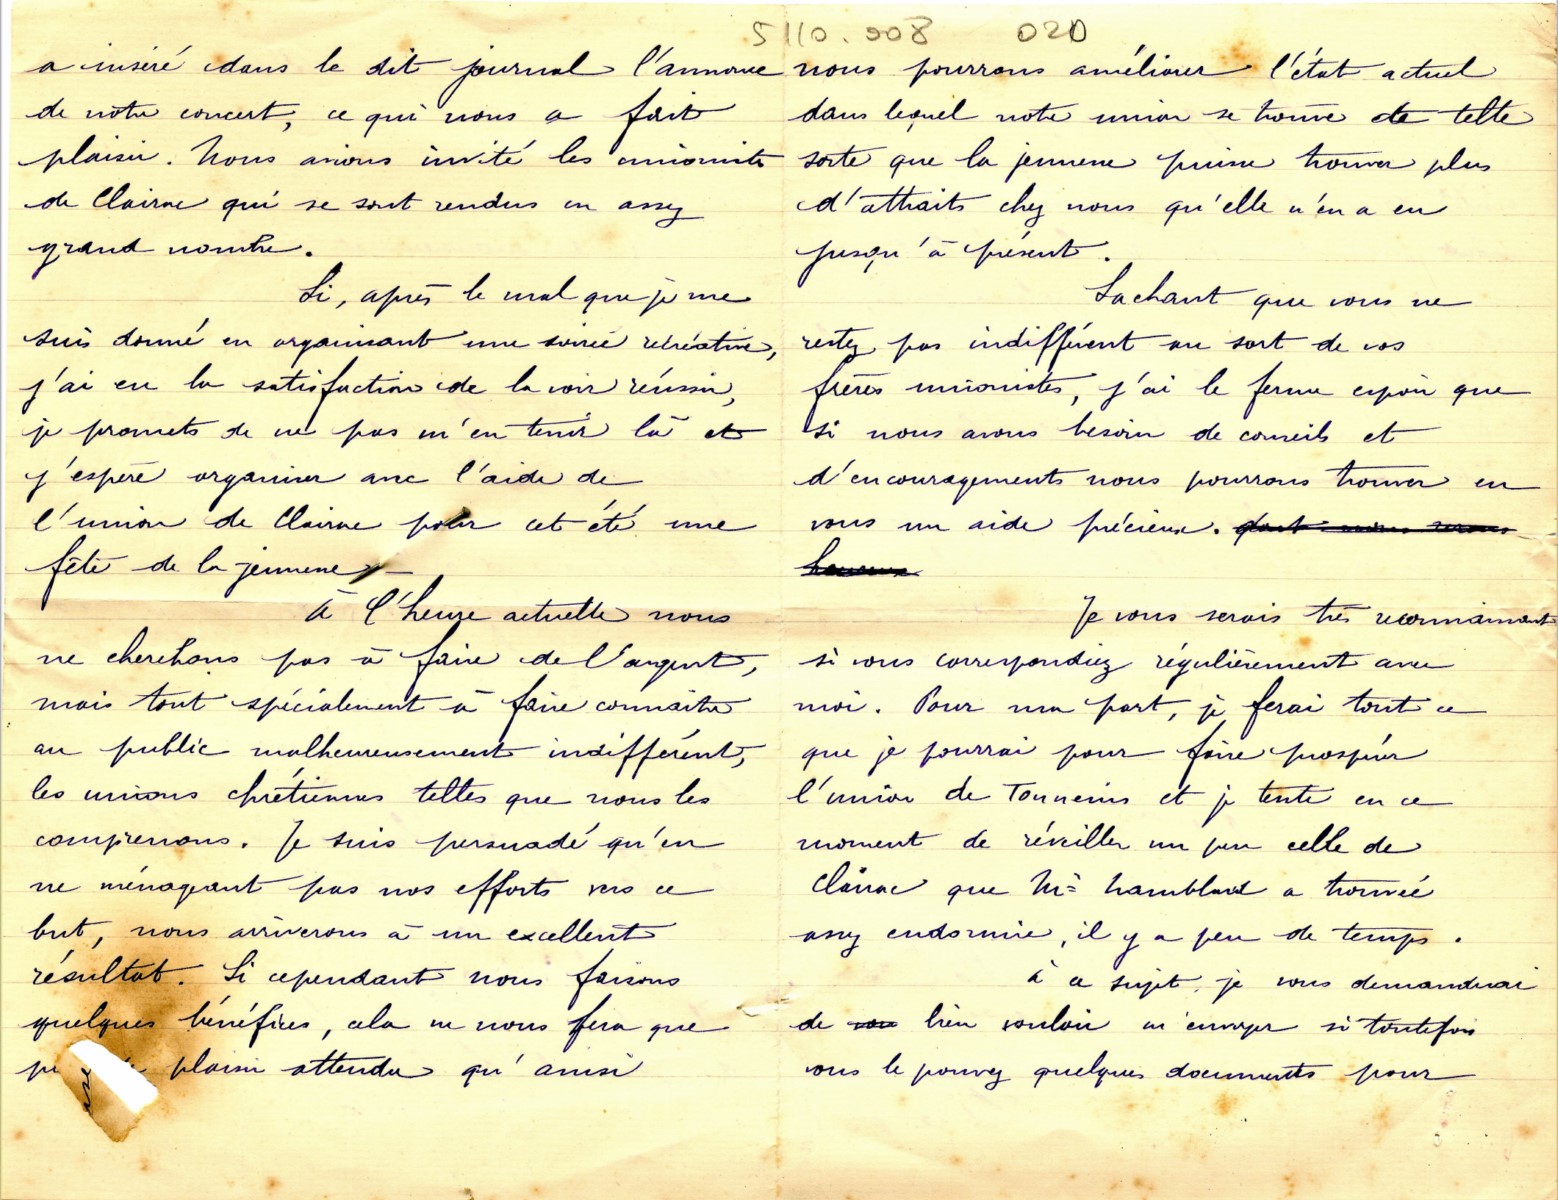 5110.908 020
a inséré dans le dit journal l'annonce
de notre concert, ce qui nous a fait
plaisir. Nous avions invité les unionistes
de Clairac qui se sont rendus en assez
grand nombre.
Si, après le mal que je me
suis donné en organisant une soirée récréative,
j'ai eu la satisfaction de la voir réussir,
je promets de ne pas m'en tenir là et
j'espère organiser avec l'aide de
l'union de Clairac pour cet été une
fête de la jeunesse. —
À l'heure actuelle nous
ne cherchons pas à faire de l'argent,
mais tout spécialement à faire connaître
au public malheureusement indifférent,
les unions chrétiennes telles que nous les
comprenons. Je suis persuadé qu'en
ne ménageant pas nos efforts vers ce
but, nous arriverons à un excellent
résultat. Si cependant nous faisons
quelques bénéfices, cela ne nous fera que
plaisir attendu qu'ainsi
nous pourrons améliorer l'état actuel
dans lequel notre union se trouve de telle
sorte que la jeunesse puisse trouver plus
d'attraits chez nous qu'elle n'en a eu
jusqu'à présent.
Sachant que vous ne
restez pas indifférent au sort de vos
frères unionistes, j'ai le ferme espoir que
si nous avons besoin de conseils et
d'encouragements nous pourrons trouver en
vous un aide précieux. dont nous serons
heureux
Je vous serais très reconnaissant
si vous correspondiez régulièrement avec
moi. Pour ma part, je ferai tout ce
que je pourrai pour faire prospérer
l'union de Tonneins et je tente en ce
moment de réveiller un peu celle de
Clairac que Mr Hamblard a trouvée
assez endormie, il y a peu de temps.
à ce sujet, je vous demanderai
de vou bien vouloir m'envoyer si toutefois
vous le pouvez quelques documents pour